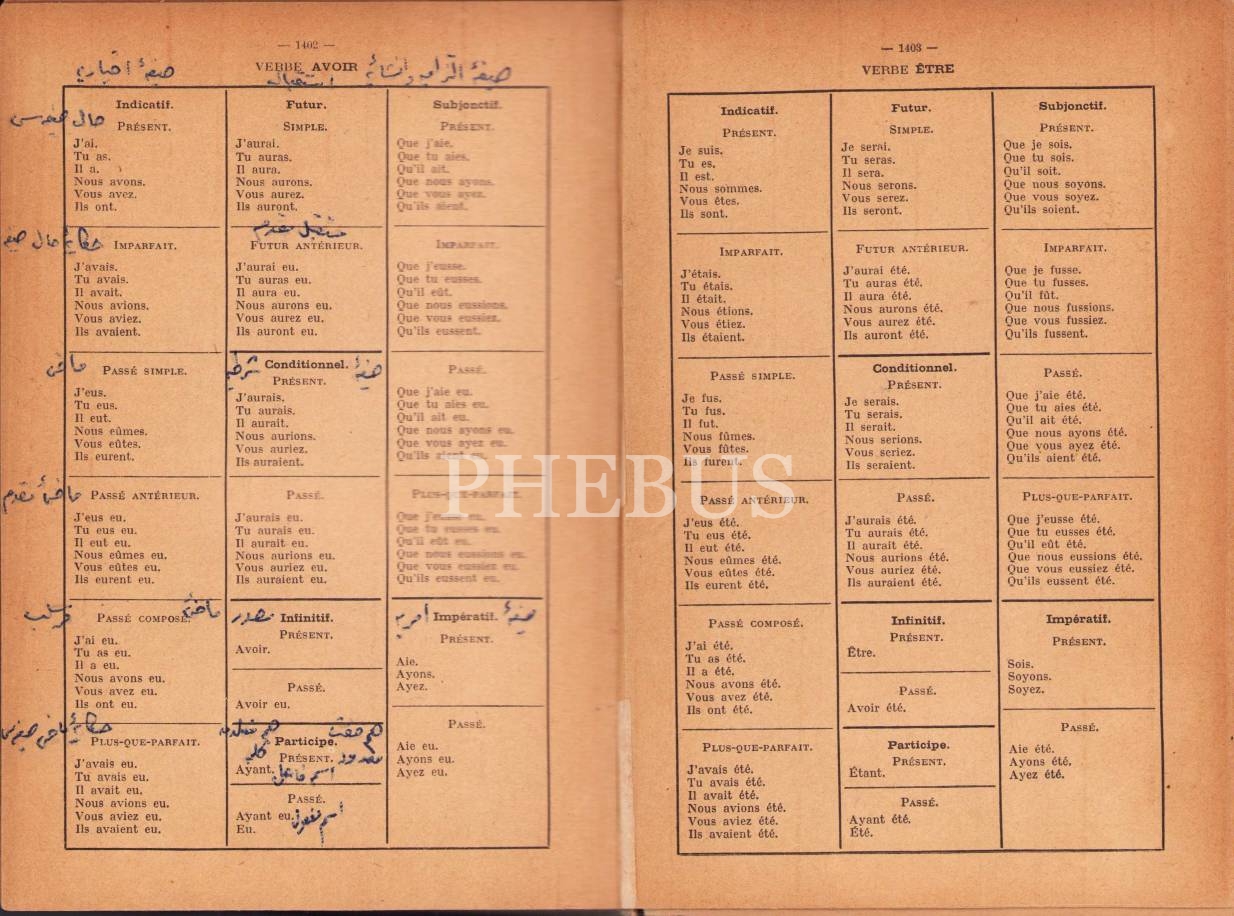 — 1402 —
VERBE AVOIR
صيغهٔ اخباريه
صيغهٔ التزاميه وانشائيه
استقبال
Indicatif.
حال صيغه سى
PRÉSENT.
J'ai.
Tu as.
Il a.
Nous avons.
Vous avez.
Ils ont.
حكايهٔ حال صيغه
IMPARFAIT.
J'avais.
Tu avais.
Il avait.
Nous avions.
Vous aviez.
Ils avaient.
ماضى
PASSÉ SIMPLE.
J'eus.
Tu eus.
Il eut.
Nous eûmes.
Vous eûtes.
Ils eurent.
ماضىٔ مقدم
PASSÉ ANTÉRIEUR.
J'eus eu.
Tu eus eu.
Il eut eu.
Nous eûmes eu.
Vous eûtes eu.
Ils eurent eu.
PASSÉ COMPOSÉ.
J'ai eu.
Tu as eu.
Il a eu.
Nous avons eu.
Vous avez eu.
Ils ont eu.
حكايهٔ ماضى صيغه سى
PLUS-QUE-PARFAIT.
J'avais eu.
Tu avais eu.
Il avait eu.
Nous avions eu.
Vous aviez eu.
Ils avaient eu.
Futur.
SIMPLE.
J'aurai.
Tu auras.
Il aura.
Nous aurons.
Vous aurez.
Ils auront.
مستقبل مقدم
FUTUR ANTÉRIEUR.
J'aurai eu.
Tu auras eu.
Il aura eu.
Nous aurons eu.
Vous aurez eu.
Ils auront eu.
صيغهٔ شرطيه
Conditionnel.
PRÉSENT.
J'aurais.
Tu aurais.
Il aurait.
Nous aurions.
Vous auriez.
Ils auraient.
PASSÉ.
J'aurais eu.
Tu aurais eu.
Il aurait eu.
Nous aurions eu.
Vous auriez eu.
Ils auraient eu.
مصدر
Infinitif.
PRÉSENT.
Avoir.
PASSÉ.
Avoir eu.
هم صفت
Participe.
PRÉSENT.
Ayant.
اسم فاعل
PASSÉ.
Ayant eu.
اسم مفعول
Eu.
Subjonctif.
PRÉSENT.
Que j'aie.
Que tu aies.
Qu'il ait.
Que nous ayons.
Que vous ayez.
Qu'ils aient.
IMPARFAIT.
Que j'eusse.
Que tu eusses.
Qu'il eût.
Que nous eussions.
Que vous eussiez.
Qu'ils eussent.
PASSÉ.
Que j'aie eu.
Que tu aies eu.
Qu'il ait eu.
Que nous ayons eu.
Que vous ayez eu.
Qu'ils aient eu.
PLUS-QUE-PARFAIT.
Que j'eusse eu.
Que tu eusses eu.
Qu'il eût eu.
Que nous eussions eu.
Que vous eussiez eu.
Qu'ils eussent eu.
صيغهٔ امريه
Impératif.
PRÉSENT.
Aie.
Ayons.
Ayez.
PASSÉ.
Aie eu.
Ayons eu.
Ayez eu.
PHEBUS
— 1403 —
VERBE ÊTRE
Indicatif.
PRÉSENT.
Je suis.
Tu es.
Il est.
Nous sommes.
Vous êtes.
Ils sont.
IMPARFAIT.
J'étais.
Tu étais.
Il était.
Nous étions.
Vous étiez.
Ils étaient.
PASSÉ SIMPLE.
Je fus.
Tu fus.
Il fut.
Nous fûmes.
Vous fûtes.
Ils furent.
PASSÉ ANTÉRIEUR.
J'eus été.
Tu eus été.
Il eut été.
Nous eûmes été.
Vous eûtes été.
Ils eurent été.
PASSÉ COMPOSÉ.
J'ai été.
Tu as été.
Il a été.
Nous avons été.
Vous avez été.
Ils ont été.
PLUS-QUE-PARFAIT.
J'avais été.
Tu avais été.
Il avait été.
Nous avions été.
Vous aviez été.
Ils avaient été.
Futur.
SIMPLE.
Je serai.
Tu seras.
Il sera.
Nous serons.
Vous serez.
Ils seront.
FUTUR ANTÉRIEUR.
J'aurai été.
Tu auras été.
Il aura été.
Nous aurons été.
Vous aurez été.
Ils auront été.
Conditionnel.
PRÉSENT.
Je serais.
Tu serais.
Il serait.
Nous serions.
Vous seriez.
Ils seraient.
PASSÉ.
J'aurais été.
Tu aurais été.
Il aurait été.
Nous aurions été.
Vous auriez été.
Ils auraient été.
Infinitif.
PRÉSENT.
Être.
PASSÉ.
Avoir été.
Participe.
PRÉSENT.
Étant.
PASSÉ.
Ayant été.
Été.
Subjonctif.
PRÉSENT.
Que je sois.
Que tu sois.
Qu'il soit.
Que nous soyons.
Que vous soyez.
Qu'ils soient.
IMPARFAIT.
Que je fusse.
Que tu fusses.
Qu'il fût.
Que nous fussions.
Que vous fussiez.
Qu'ils fussent.
PASSÉ.
Que j'aie été.
Que tu aies été.
Qu'il ait été.
Que nous ayons été.
Que vous ayez été.
Qu'ils aient été.
PLUS-QUE-PARFAIT.
Que j'eusse été.
Que tu eusses été.
Qu'il eût été.
Que nous eussions été.
Que vous eussiez été.
Qu'ils eussent été.
Impératif.
PRÉSENT.
Sois.
Soyons.
Soyez.
PASSÉ.
Aie été.
Ayons été.
Ayez été.